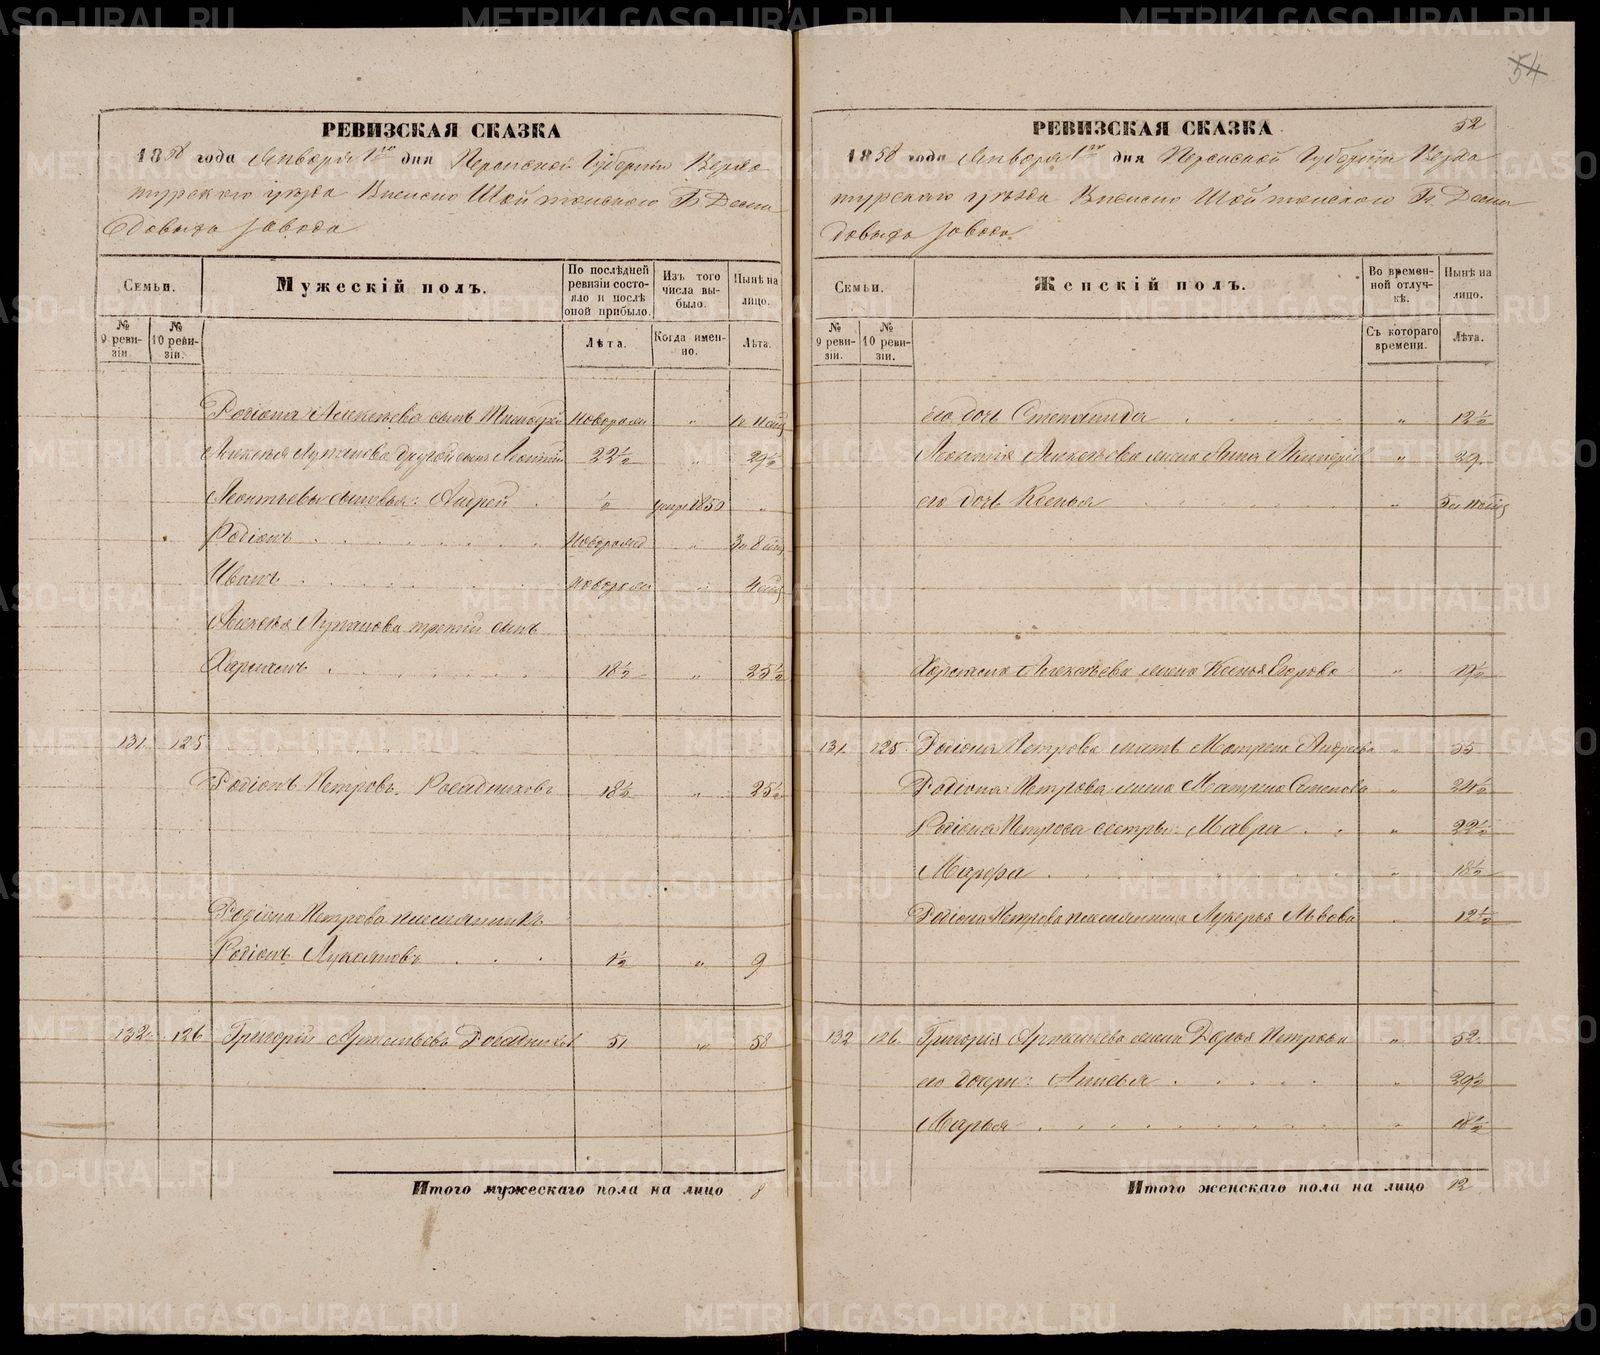 54
РЕВИЗСКАЯ СКАЗКА
1858 года Января 1го дня Пермской Губернии Верхо
турскаго уѣзда Висимо Шайтанскаго
завода
Семьи.
№ 9 ревизіи.
№ 10 ревизіи.
Мужескій полъ.
По послѣдней ревизіи состояло и послѣ оной прибыло.
Лѣта.
Изъ того числа выбыло.
Когда именно.
Нынѣ на лицо.
Лѣта.
Родіона Алексѣева сынъ Тимофей новорожд "
Алексѣя Лупанова другой сынъ Леонтій 22½ " 29½
Леонтьевы сыновья: Андрей ½ умре 1850 "
Родіонъ новорожд "
Иванъ новорож "
Алексѣя Лупанова третій сынъ
Харламъ 18½ " 25½
131. 125
Родіонъ Петровъ Росадниковъ 18½ " 25½
Родіона Петрова племянникъ
Родіонъ 1½ " 9
132. 126 Григорій Артемьевъ Росадников 51 " 58
Итого мужескаго пола на лицо 8
РЕВИЗСКАЯ СКАЗКА 52
1858 года Января 1го дня Пермской Губерніи Верхо
турскаго уѣзда Висимо Шайтанскаго
завода
Семьи.
№ 9 ревизіи.
№ 10 ревизіи.
Женскій полъ.
Во временной отлучкѣ.
Съ котораго времени.
Нынѣ на лицо.
Лѣта.
его дочь Степанида " 12½
Леонтія Алексѣева жена Анна " 29
его дочь Ксенья "
Харлама Алексѣева жена Ксенья Егорова " 19½
131. 125. Родіона Петрова мать Матрена Андреева " 55
Родіона Петрова жена Матрена Семенова " 24½
Родіона Петрова сестры: Мавра " 22½
Марфа " 18½
Родіона Петрова племянница Лукерья Львова 12½
132 126. Григорія Артемьева жена Дарья Петрова " 52
его дочери: Анисья " 29½
Марья " 18½
Итого женскаго пола на лицо 12
METRIKI.GASO-URAL.RU